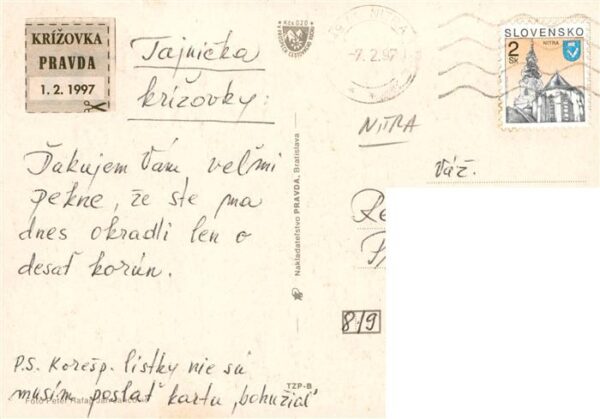 KRÍŽOVKA
PRAVDA
1. 2. 1997
Tajnička
krížovky:
Ďakujem Vám veľmi
pekne, že ste ma
dnes okradli len o
desať korún.
P.S. Korešp. lístky nie sú
musím poslať kartu, "bohužiaľ"
Foto Peter
TZP-B
Nakladateľstvo PRAVDA, Bratislava
Kčs 0,20
NITRA
-7.2.97
SLOVENSKO
2
Sk
NITRA
NITRA
Váž.
8/9